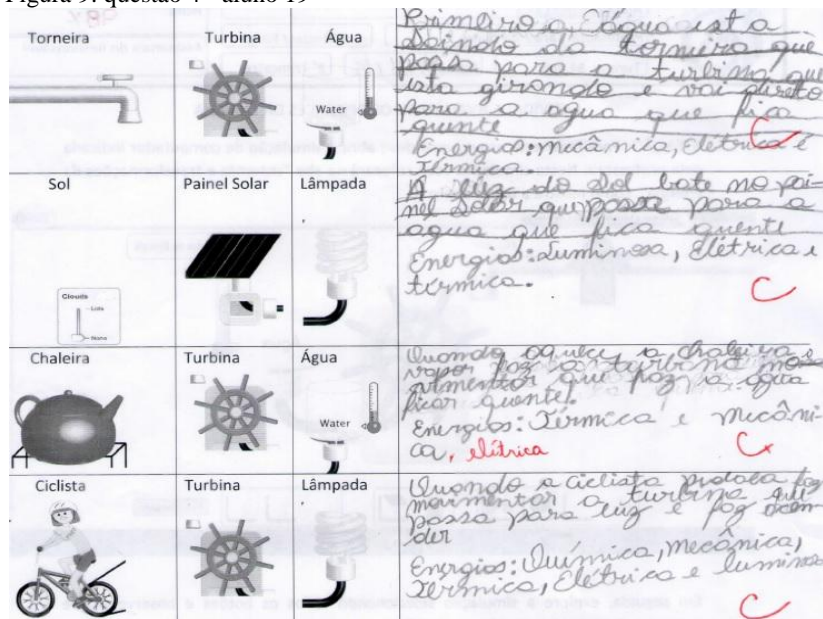 Figura 9: questão 4 - aluno 19
Torneira
Turbina
Água
Water
Primeiro a água ista
saindo da torneira que
passa para a turbina que
ista girando e vai direto
para a agua que fica
quente
Energias: mecânica, elétrica e
térmica.
C
Sol
Painel Solar
Lâmpada
Clouds
Lots
None
A luz do sol bate no pai-
nel solar que passa para a
agua que fica quente
Energias: Luminosa, elétrica e
térmica.
C
Chaleira
Turbina
Água
Water
Quando aquece a chaleira o
vapor faz a turbina mo-
vimentar que faz a agua
ficar quente.
Energias: Térmica e mecâni-
ca, elétrica
C
Ciclista
Turbina
Lâmpada
Quando a ciclista pedala faz
movimentar a turbina que
passa para luz e faz acen-
der
Energias: Química, mecânica,
Térmica, Elétrica e luminosa
C